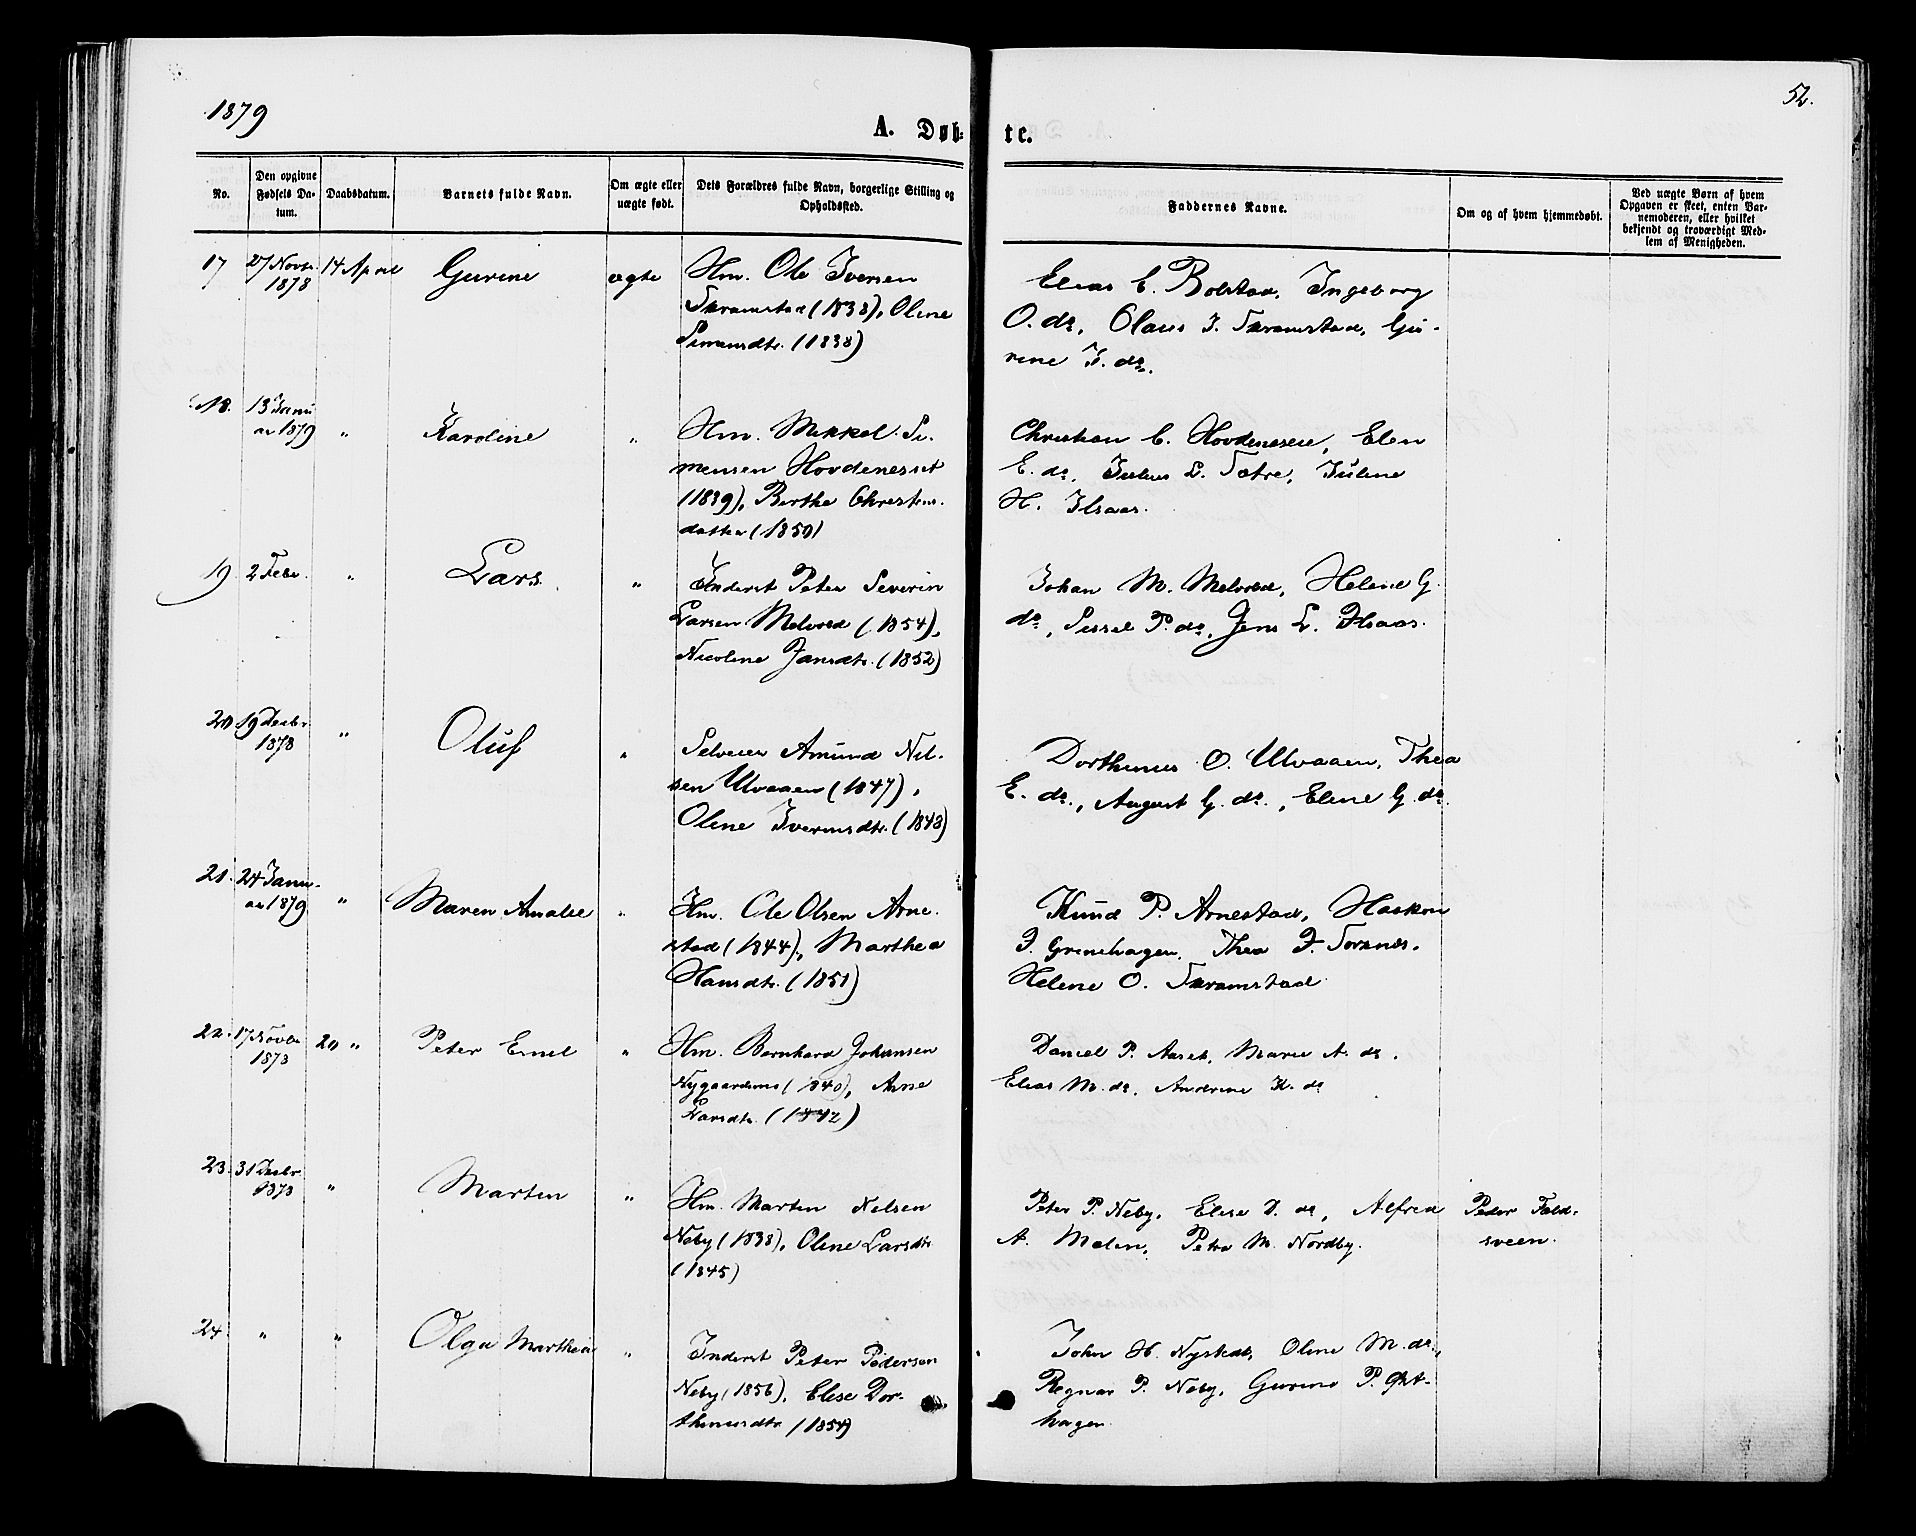 1879
52.
A. Døb-
te.
No.
Den opgivne Fødsels Da-tum.
Daabsdatum.
Barnets fulde Navn.
Om ægte eller uægte født.
Dets Forældres fulde Navn, borgerlige Stilling og Opholdssted.
Faddernes Navne.
Om og af hvem hjemmedøbt.
Ved uægte Børn af hvem Opgaven er skeet, enten Bar-nemoderen, eller hvilket bekjendt og troværdigt Med-lem af Menigheden.
17 27 Novbr. 14 April Gurine ægte Hm. Ole Iversen
1878
Skramstad (1838), Oline
Simensdtr. (1838)
Elias C. Bolstad, Ingeborg
O. do, Olaus I. Skramstad, Gu-
rine I. do.
18. 13 Janu
ar 1879 " Karoline " Hm. Mikkel Si-
mensen Hovdeneset
(1839), Berthe Christens-
datter (1850)
Christian C. Hovdeneseie, Elen
E. do, Julius L. Sætre, Juline
H. Ilsaas.
19. 2 Febr. " Lars. " Inderst Peter Severin
Larsen Melvold (1854),
Nicoline Jansdtr. (1852)
Johan M. Melvold, Helene G.
do, Sissel P. do, Jens L. Ilsaas.
20 19 Decbr. " Oluf " Selveier Amund Nil-
1878
sen Ulvaaen (1847),
Oline Iversdtr. (1848)
Dorthinus O. Ulvaaen, Thea
E. do., August G. do., Eline G. do.
21. 24 Janu-
ar 1879 " Maren Amalie " Hm. Ole Olsen Arne-
stad (1844), Marthea
Hansdtr. (1851)
Knud P. Arnestad, Haakon
J. Grinehagen, Thea
Helene O. Skramstad
22. 17 Novbr. 20 " Peter Emil " Hm. Bernhard Johansen
1878
(1840), Arne
Larsdtr. (1842)
Daniel P. Aaset, Marie A. do.
Elias M. do, Andrine K. do
23. 31 Decbr
1878 " Martin " Hm. Martin Nilsen
Neby (1838), Oline Larsdtr.
(1845)
Peter P. Neby, Elise D. do, Alfred
A. Moen, Petra M. Nordby.
Peder Fald-
sveen.
24. " " Olga Marthea " Inderst Peter Pedersen
Neby (1856), Elise Dor-
thinusdtr. (1854)
John H. Nystedt, Oline M. do.,
Regnar P. Neby, Gurine P.
hagen.